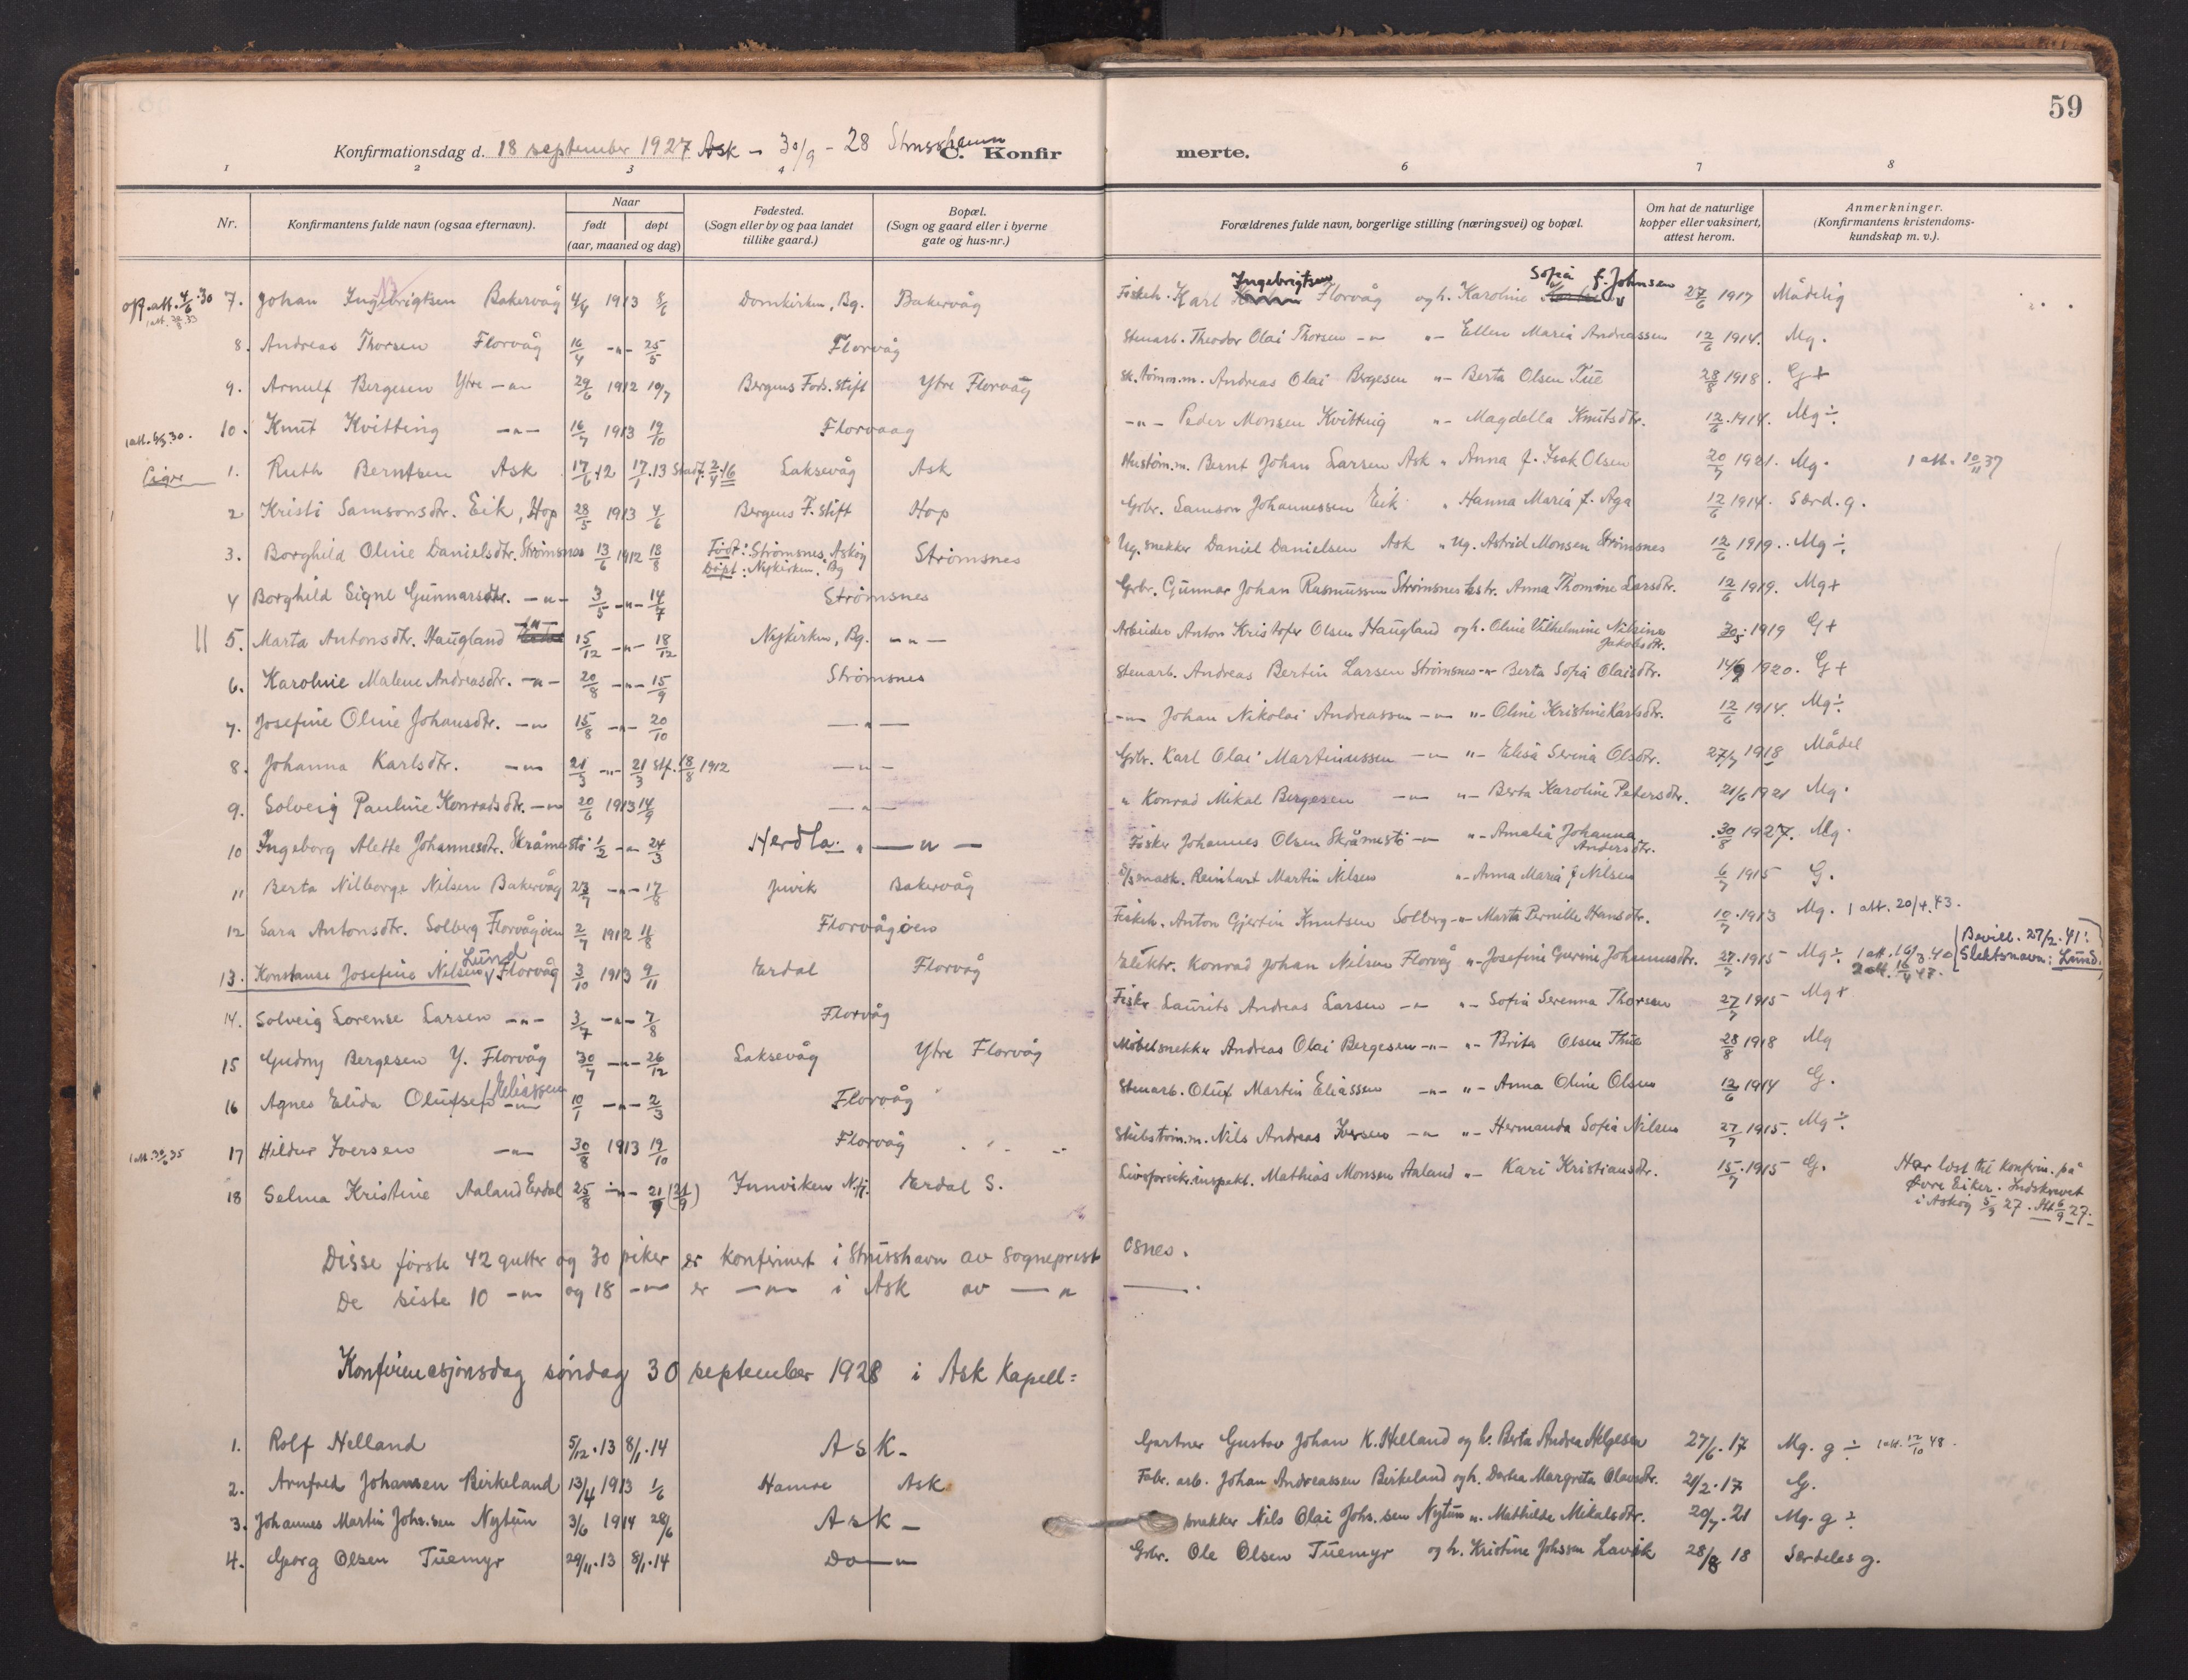 59
Konfirmationsdag d. 18 september 1927 Ask - 30/9 - 28 Strusshamn C. Konfir merte.
1 2 3 4 6 7 8
Nr. Konfirmantens fulde navn (ogsaa efternavn). Naar født døpt (aar, maaned og dag) Fødested. (Sogn eller by og paa landet tillike gaard.) Bopæl. (Sogn og gaard eller i byerne gate og hus-nr.) Forældrenes fulde navn, borgerlige stilling (næringsvei) og bopæl. Om hat de naturlige kopper eller vaksinert, attest herom. Anmerkninger. (Konfirmantens kristendomskundskap m. v.).
off. att. 4/6 30 7. Johan Ingebrigtsen Bakervåg 4/4 1913 8/6 Domkirken, Bg. Bakervåg Fiskeh. Karl Ingebrigtsen Florvåg og h. Karoline Sofia f. Johnsen 27/6 1917 Mådelig
8. Andreas Thorsen Florvåg 16/4 -"- 25/5 Florvåg Stenarb. Theodor Olai Thorsen -"- "- Ellen Maria Andreassen 12/6 1914. Mg.
9. Arnulf Bergesen Ytre -"- 29/6 1912 10/7 Bergens Føds. stift Ytre Florvåg Sk. tømm.m. Andreas Olai Bergesen "- Berta Olsen Tue 28/8 1918. G +
10. Knut Kvitting -"- 16/7 1913 19/10 Florvaag -"- Peder Monsen Kvitting "- Magdella Knutsdtr. 12/6 1914. Mg ÷
Piger 1. Ruth Berntsen Ask 17/6 12 17/1 13 Stadf. 2/4 16 Laksevåg Ask Hustøm.m. Bernt Johan Larsen Ask " Anna f. Isak Olsen 20/7 1921. Mg. 1 att. 10/11 37
2 Kristi Samsonsdtr. Eik, Hop 28/5 1913 4/6 Bergens F. stift Hop Grbr. Samson Johannessen Eik " Hanna Maria f. Aga 12/6 1914. Særd. g.
3. Borghild Oline Danielsdtr. Strømsnes 13/6 1912 18/8 Født: Strømsnes, Askøy Døpt: Nykirken, Bg Strømsnes Ug. snekker Daniel Danielsen Ask " Ug. Astrid Monsen Strømsnes 12/6 1919. Mg ÷
4 Borghild Signe Gunnarsdtr. -"- 3/5 -"- 14/7 Strømsnes Grbr. Gunnar Johan Rasmussen Strømsnes hstr. Anna Thomine Larsdtr. 12/6 1919. Mg +
5. Marta Antonsdtr. Haugland -"- 15/12 -"- 18/12 Nykirken, Bg. -"- Arbeider Anton Kristofer Olsen Haugland og h. Oline Vilhelmine Nilsine Jakobsdtr. 30/5 1919 G +
6. Karoline Malene Andreasdtr. -"- 20/8 -"- 15/9 Strømsnes Stenarb. Andreas Bertin Larsen Strømsnes -"- Berta Sofia Olaisdtr. 14/9 1920. G +
7. Josefine Oline Johansdtr. -"- 15/8 -"- 20/10 -"- -"- Johan Nikolai Andreassen -"- "- Oline Kristine Karlsdtr. 12/6 1914. Mg ÷
8. Johanna Karlsdtr. -"- 21/3 -"- 21/3 Stf. 18/8 1912 -"- Grbr. Karl Olai Martinussen -"- "- Elisa Serina Olsdtr. 27/7 1918 Mådel
9. Solveig Pauline Konradsdtr. -"- 20/6 1913 14/9 -"- " Konrad Mikal Bergesen -"- "- Berta Karoline Petersdtr. 21/6 1921 Mg.
10 Ingeborg Alette Johannesdtr. Skråmestø 1/2 -"- 24/3 Herdla. " -"- Fisker Johannes Olsen Skråmestø -"- "- Amalia Johanna Andersdtr. 30/8 1927. Mg.
11 Berta Nilborge Nilsen Bakervåg 23/7 -"- 17/8 Juvik Bakervåg D/s mask. Reinhart Martin Nilsen "- Anna Maria f Nilsen 6/7 1915 G.
12 Sara Antonsdtr. Solberg Florvågøen 2/7 1912 11/8 Florvågøen Fiskeh. Anton Gjertin Knutsen Solberg -"- Marta Pernille Hansdtr. 10/7 1913 Mg. 1 att. 20/4. 43.
13. Konstanse Josefine Nilsen Lund Florvåg 3/10 1913 9/11 Erdal Florvåg Elektr. Konrad Johan Nilsen Florvåg "- Josefine Gurine Johannesdtr. 27/7 1915 Mg ÷ 1 att. 16/3 40 2 att. 16/4 47. Bevill. 27/2. 41: Slektsnavn: Lund.
14. Solveig Lorense Larsen -"- 3/7 -"- 7/8 Florvåg Fisker Laurits Andreas Larsen -"- "- Sofia Serenna Thorsen 27/7 1915 Mg +
15 Gudny Bergesen Y. Florvåg 30/7 -"- 26/12 Laksevåg Ytre Florvåg Møbelsnekker Andreas Olai Bergesen -"- "- Brita Olsen Thue 28/8 1918 Mg
16 Agnes Elida Olufsen / Eliassen -"- 10/1 -"- 2/3 Florvåg Stenarb. Oluf Martin Eliassen -"- "- Anna Oline Olsen 12/6 1914 G.
17 Hildur Iversen -"- 30/8 1913 19/10 Florvåg Skibstøm.m. Nils Andreas Iversen -"- "- Hermanda Sofia Nilsen 27/7 1915. Mg ÷
18 Selma Kristine Aaland Erdal 25/8 -"- 21/9 (21/9) Innviken Nfj. Erdal S. Livsforsikr. inspekt. Mathias Monsen Aaland "- Kari Kristiansdtr. 15/7 1915 G. Har løst til konfirm. på Øvre Eiker. Indskrevet i Askøy 5/9 27. Att 6/9 27.
Disse første 42 gutter og 30 piker er konfirmert i Strusshavn av sogneprest Osnes.
De siste 10 -"- og 18 -"- er -"- i Ask av -"-
Konfirmasjonsdag søndag 30 september 1928 i Ask Kapell:
1. Rolf Helland 5/12.13 8/1.14 Ask - Gartner Gustav Johan K. Helland og h. Berta Andrea Helgesen 27/6.17 Mg. g ÷ 1 att. 12/10 48.
2. Arnfred Johansen Birkeland 13/4 1913 1/6 Hamre Ask Fabr. arb. Johan Andreassen Birkeland og h. Dortea Margreta Olavsdtr. 21/2.17 G.
3. Johannes Martin Johs.sen Nytun 3/6 1914 28/6 Ask - snekker Nils Olai Johs.sen Nytun ". Mathilde Mikalsdtr. 20/7.21 Mg. g ÷
4. Georg Olsen Tuemyr 29/11.13 8/1.14 Do -"- Grbr. Ole Olsen Tuemyr og h. Kristine Johssen Lavik 28/8 18 Særdeles g.